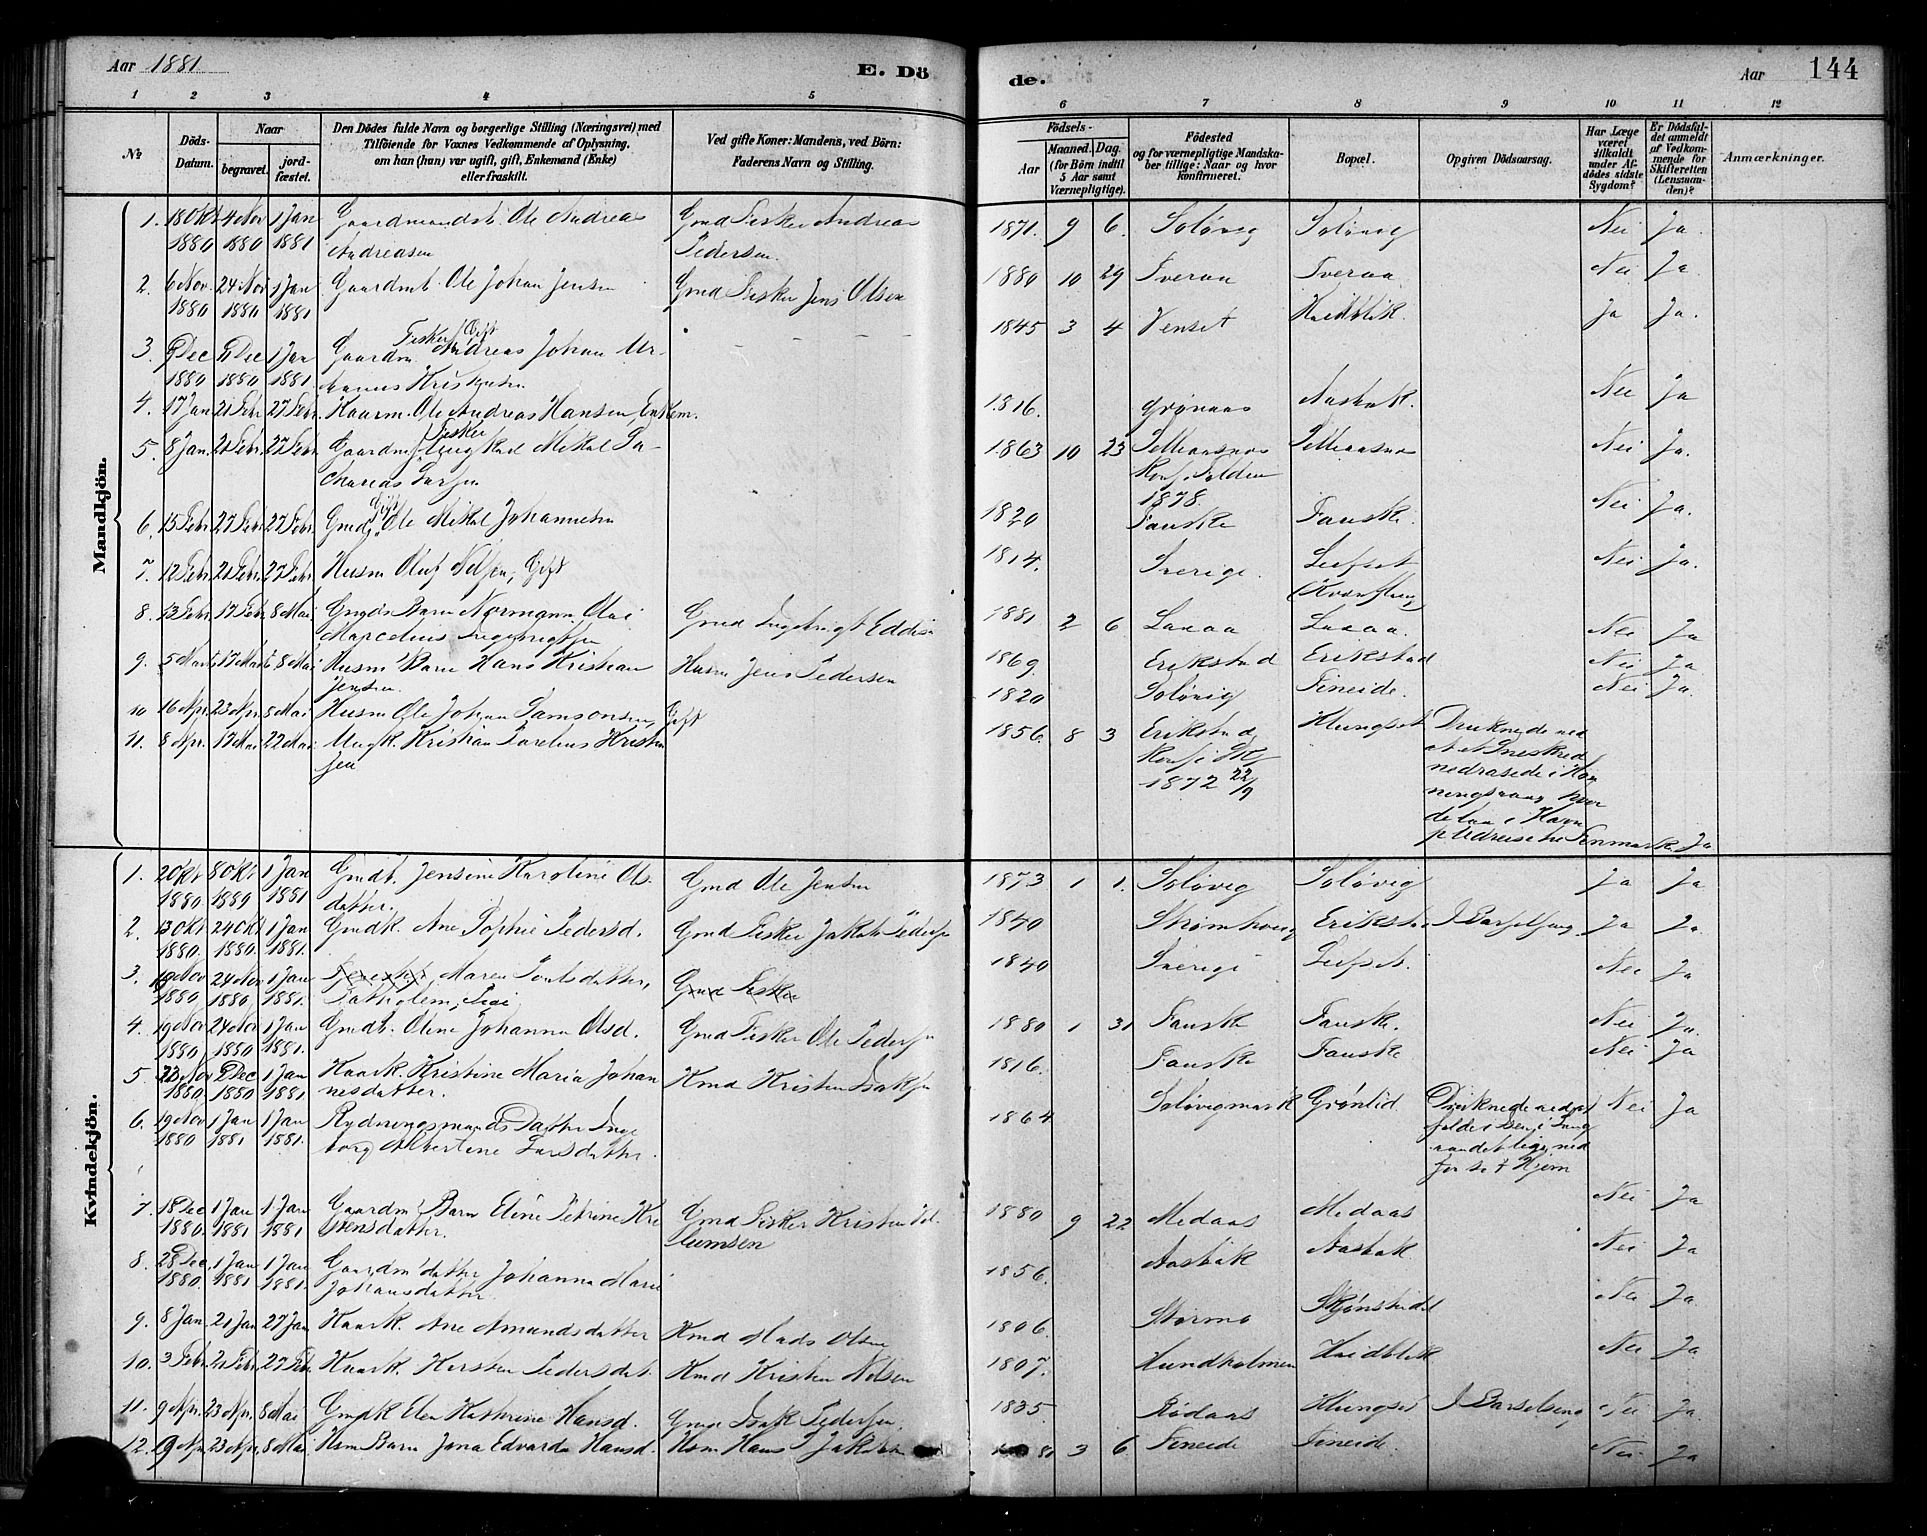 Aar 1881
E. Dö
de.
Aar
144
1 2 3 4 5 6 7 8 9 10 11 12
No
Döds-Datum.
Naar
begravet.
jord-fæstet.
Den Dödes fulde Navn og borgerlige Stilling (Næringsvei) med
Tilföiende for Voxnes Vedkommende af Oplysning,
om han (hun) var ugift, gift, Enkemand (Enke)
eller fraskilt.
Ved gifte Koner: Mandens, ved Börn:
Faderens Navn og Stilling.
Födsels-
Aar
Maaned. Dag.
(for Börn indtil
5 Aar samt
Værnepligtige).
Födested
og for værnepligtige Mandska-
ber tillige: Naar og hvor
konfirmeret.
Bopæl.
Opgiven Dödsaarsag.
Har Læge
været
tilkaldt
under Af-
dödes sidste
Sygdom?
Er Dödsfal-
det anmeldt
af Vedkom-
mende for
Skifteretten
(Lensman-
den)?
Anmærkninger.
Mandkjön.
1. 18 Okt 1880 4 Nov 1880 1 Jan 1881 Gaardmandsb. Ole Andreas Andreasen Gmd Fisker Andreas Pedersen. 1871. 9 6. Soløvig Soløvig Nei Ja.
2. 6 Nov. 1880 24 Nov 1880 1 Jan 1881 Gaardmb. Ole Johan Jensen Gmd Fisker Jens Olsen 1880 10 29 Tveraa Tveraa Nei Ja
3 Dec 1880 Dec 1880 1 Jan 1881. Gaardm Fisker Gift Andreas Johan Kristensen 1845 3 4 Venset Hvidblik. Ja Ja.
4. 17 Jan 21 Febr. 27 Febr. Kaarm. Ole Andreas Hansen, Enkem. 1816. Grønaas Aasbak. Nei Ja
5. 8 Jan. 21 Febr. 27 Febr. Gaardm Fisker Ungkarl Mikal Zacharias Larsen 1863 10 23 Konf. 1878. Nei Ja.
6. 15 Febr. 27 Febr. 27 Febr. Gmd Gift Ole Mikal Johannesen 1820 Fauske Fauske. Nei Ja.
7. 12 Febr. 21 Febr. 27 Febr. Husm Oluf Nilsen, Gift 1814. Sverige. Leifset Nei Ja.
8. 13 Febr. 17 Febr. 8 Mai Barn Normann Olai Marcelius Ingebrigtsen Gmd Ingebrigt 1881 2 6 Laxaa Laxaa. Nei Ja
9. 5 Marts 17 Marts 8 Mai Husm Barn Hans Kristian Jensen. Husm Jens Pedersen 1869. Erikstad Erikstad Nei Ja
10 16 Apr. 23 Apr. 8 Mai Husm Ole Johan Samsonsen, Gift 1820 Soløvig Fineide. Nei Ja.
11. 8 Apr. 17 Mai 22 Mai. Ungk. Kristian Kristensen 1856. 8 3 Erikstad Konf. 1872 22/9 Klungset Druknede ved at et Sneskred nedrasede i Honningsvaag hvor de laa i Havn p Udreise til Finmarken Ja
Kvindekjön.
1. 2 Okt 1880 8 Okt 1880 1 Jan 1881 Gmdb. Jensine Karoline Olsdatter. Gmd Ole Jensen 1873 1 1. Soløvig Soløvig Ja Ja
2. 13 Okt 1880. 24 Okt 1880. 1 Jan 1881. Gmdk. Ane Sophie Pedersd. Gmd Fisker Jakob Pedersen 1840 Strømhaug Erikstad I Barselseng Ja Ja.
3. 19 Nov 1880 24 Nov 1880 1 Jan 1881. Maren Poulsdatter, Gmd Fisker 1840 Sverige Leifset. Nei Ja
4. 19 Nov 1880 24 Nov 1880 1 Jan 1881. Gmdb. Oline Johanna Olsd. Gmd Fisker Ole Pedersen 1880 1 31 Fauske Fauske. Nei Ja.
5 23 Nov 1880 2 Dec 1880 1 Jan 1881 Kaark. Kristine Maria Johannesdatter. Kmd Kristen Isaksen 1816. Fauske Fauske Nei Ja
6. 19 Nov 1880 1 Jan 1881 1 Jan 1881. Rydningsmands Datter Ingeborg Albertine Larsdatter. 1864 Soløvigmark Grønlid. Druknede ved at falde i vandet lige ned for sit Hjem Nei Ja
7. 18 Dec 1880. 1 Jan 1881 1 Jan 1881 Gaardm Barn Eline Petrine Kristensdatter. Gmd Fisker Kristen 1880 9 22 Medaas Medaas Nei Ja
8. 28 Dec. 1880. 1 Jan 1881 1 Jan 1881. Gaardm datter Johanna Marie Johansdatter. 1856. Aasbak Aasbak Nei Ja
9. 8 Jan. 21 Jan 27 Jan Kaark. Ane Amundsdatter Kmd Mads Olsen 1806. Stormo Skjønstidal Nei Ja
10. 3 Febr. 21 Febr. 27 Febr Kaark. Kirsten Pedersdat. Kmd Kristen Nilsen 1807. Hundholmen Hvidblik Nei Ja
11. 9 Apr. 23 Apr. 8 Mai Gmdk Elen Kathrine Hansd. Gmd Isak Pedersen. 1835 Rødaas Klungset I Barselseng Nei Ja.
12. 9 Apr 23 Apr. 8 Mai. Hsm Barn Jona Edvarda Hansd. Hsm Hans Jakobsen 81 3 6 Fineide Fineide. Nei Ja